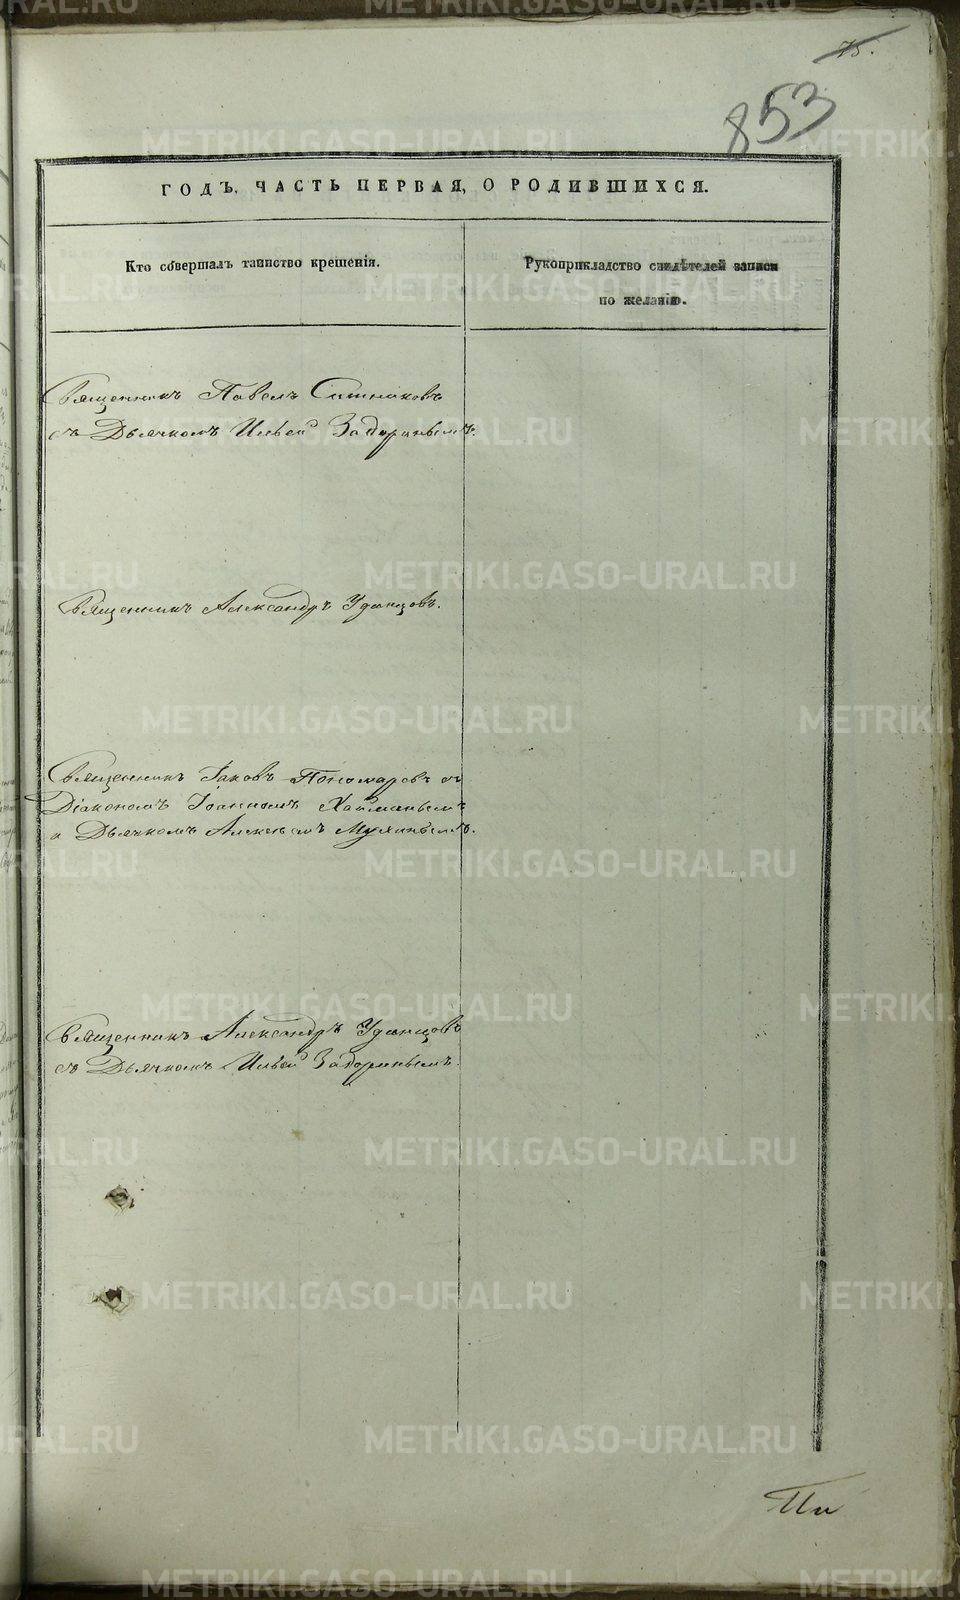 75.
853
ГОДЪ. ЧАСТЬ ПЕРВАЯ, О РОДИВШИХСЯ.
Кто совершалъ таинство крещенія.
Рукоприкладство свидѣтелей записи
по желанію.
Священникъ Павелъ Ситниковъ
съ Дьячкомъ Ильей Задоринымъ.
Священникъ Александръ Удинцовъ.
Священникъ Іаковъ Пономаревъ съ
Діакономъ Іоанномъ
и Дьячкомъ Алексѣемъ Мухинымъ.
Священникъ Александръ Удинцовъ
съ Дьячкомъ Ильей Задоринымъ.
METRIKI.GASO-URAL.RU